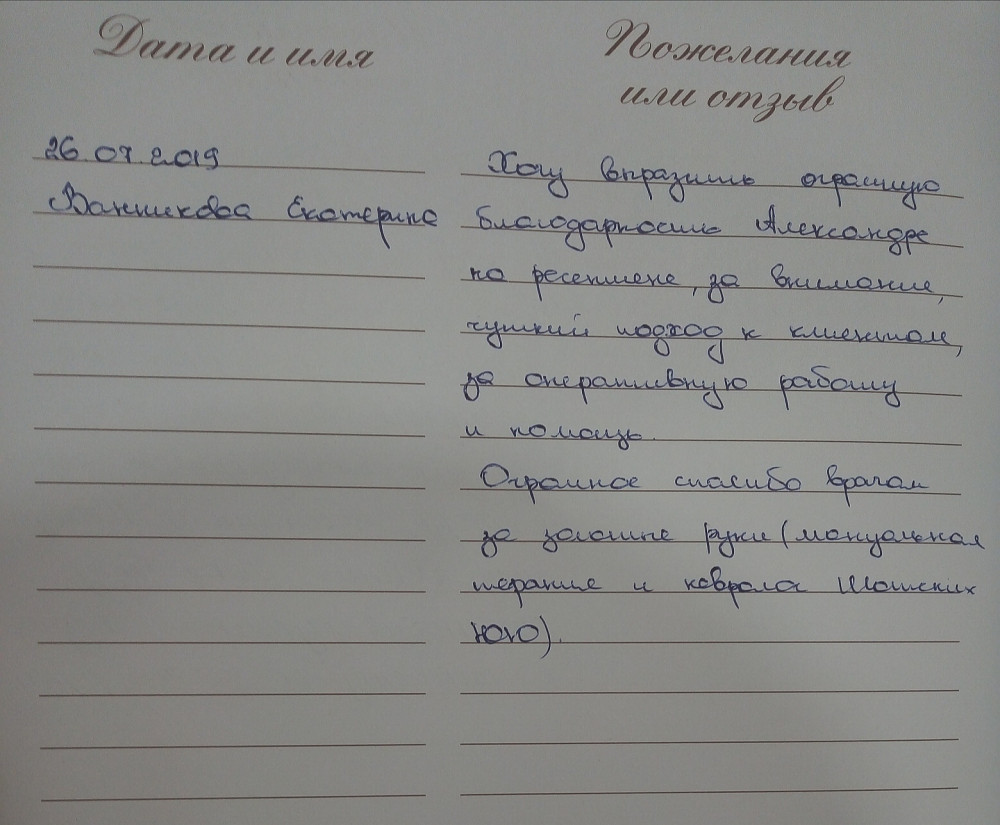 Дата и имя
Пожелания
или отзыв
26.07.2019
Ванчикова Екатерина
Хочу выразить огромную
благодарность Александре
на ресепшене, за внимание,
чуткий подход к клиентам,
за оперативную работу
и помощь.
Огромное спасибо врачам
за золотые руки (мануальная
терапия и невролог
Ю.Ю).